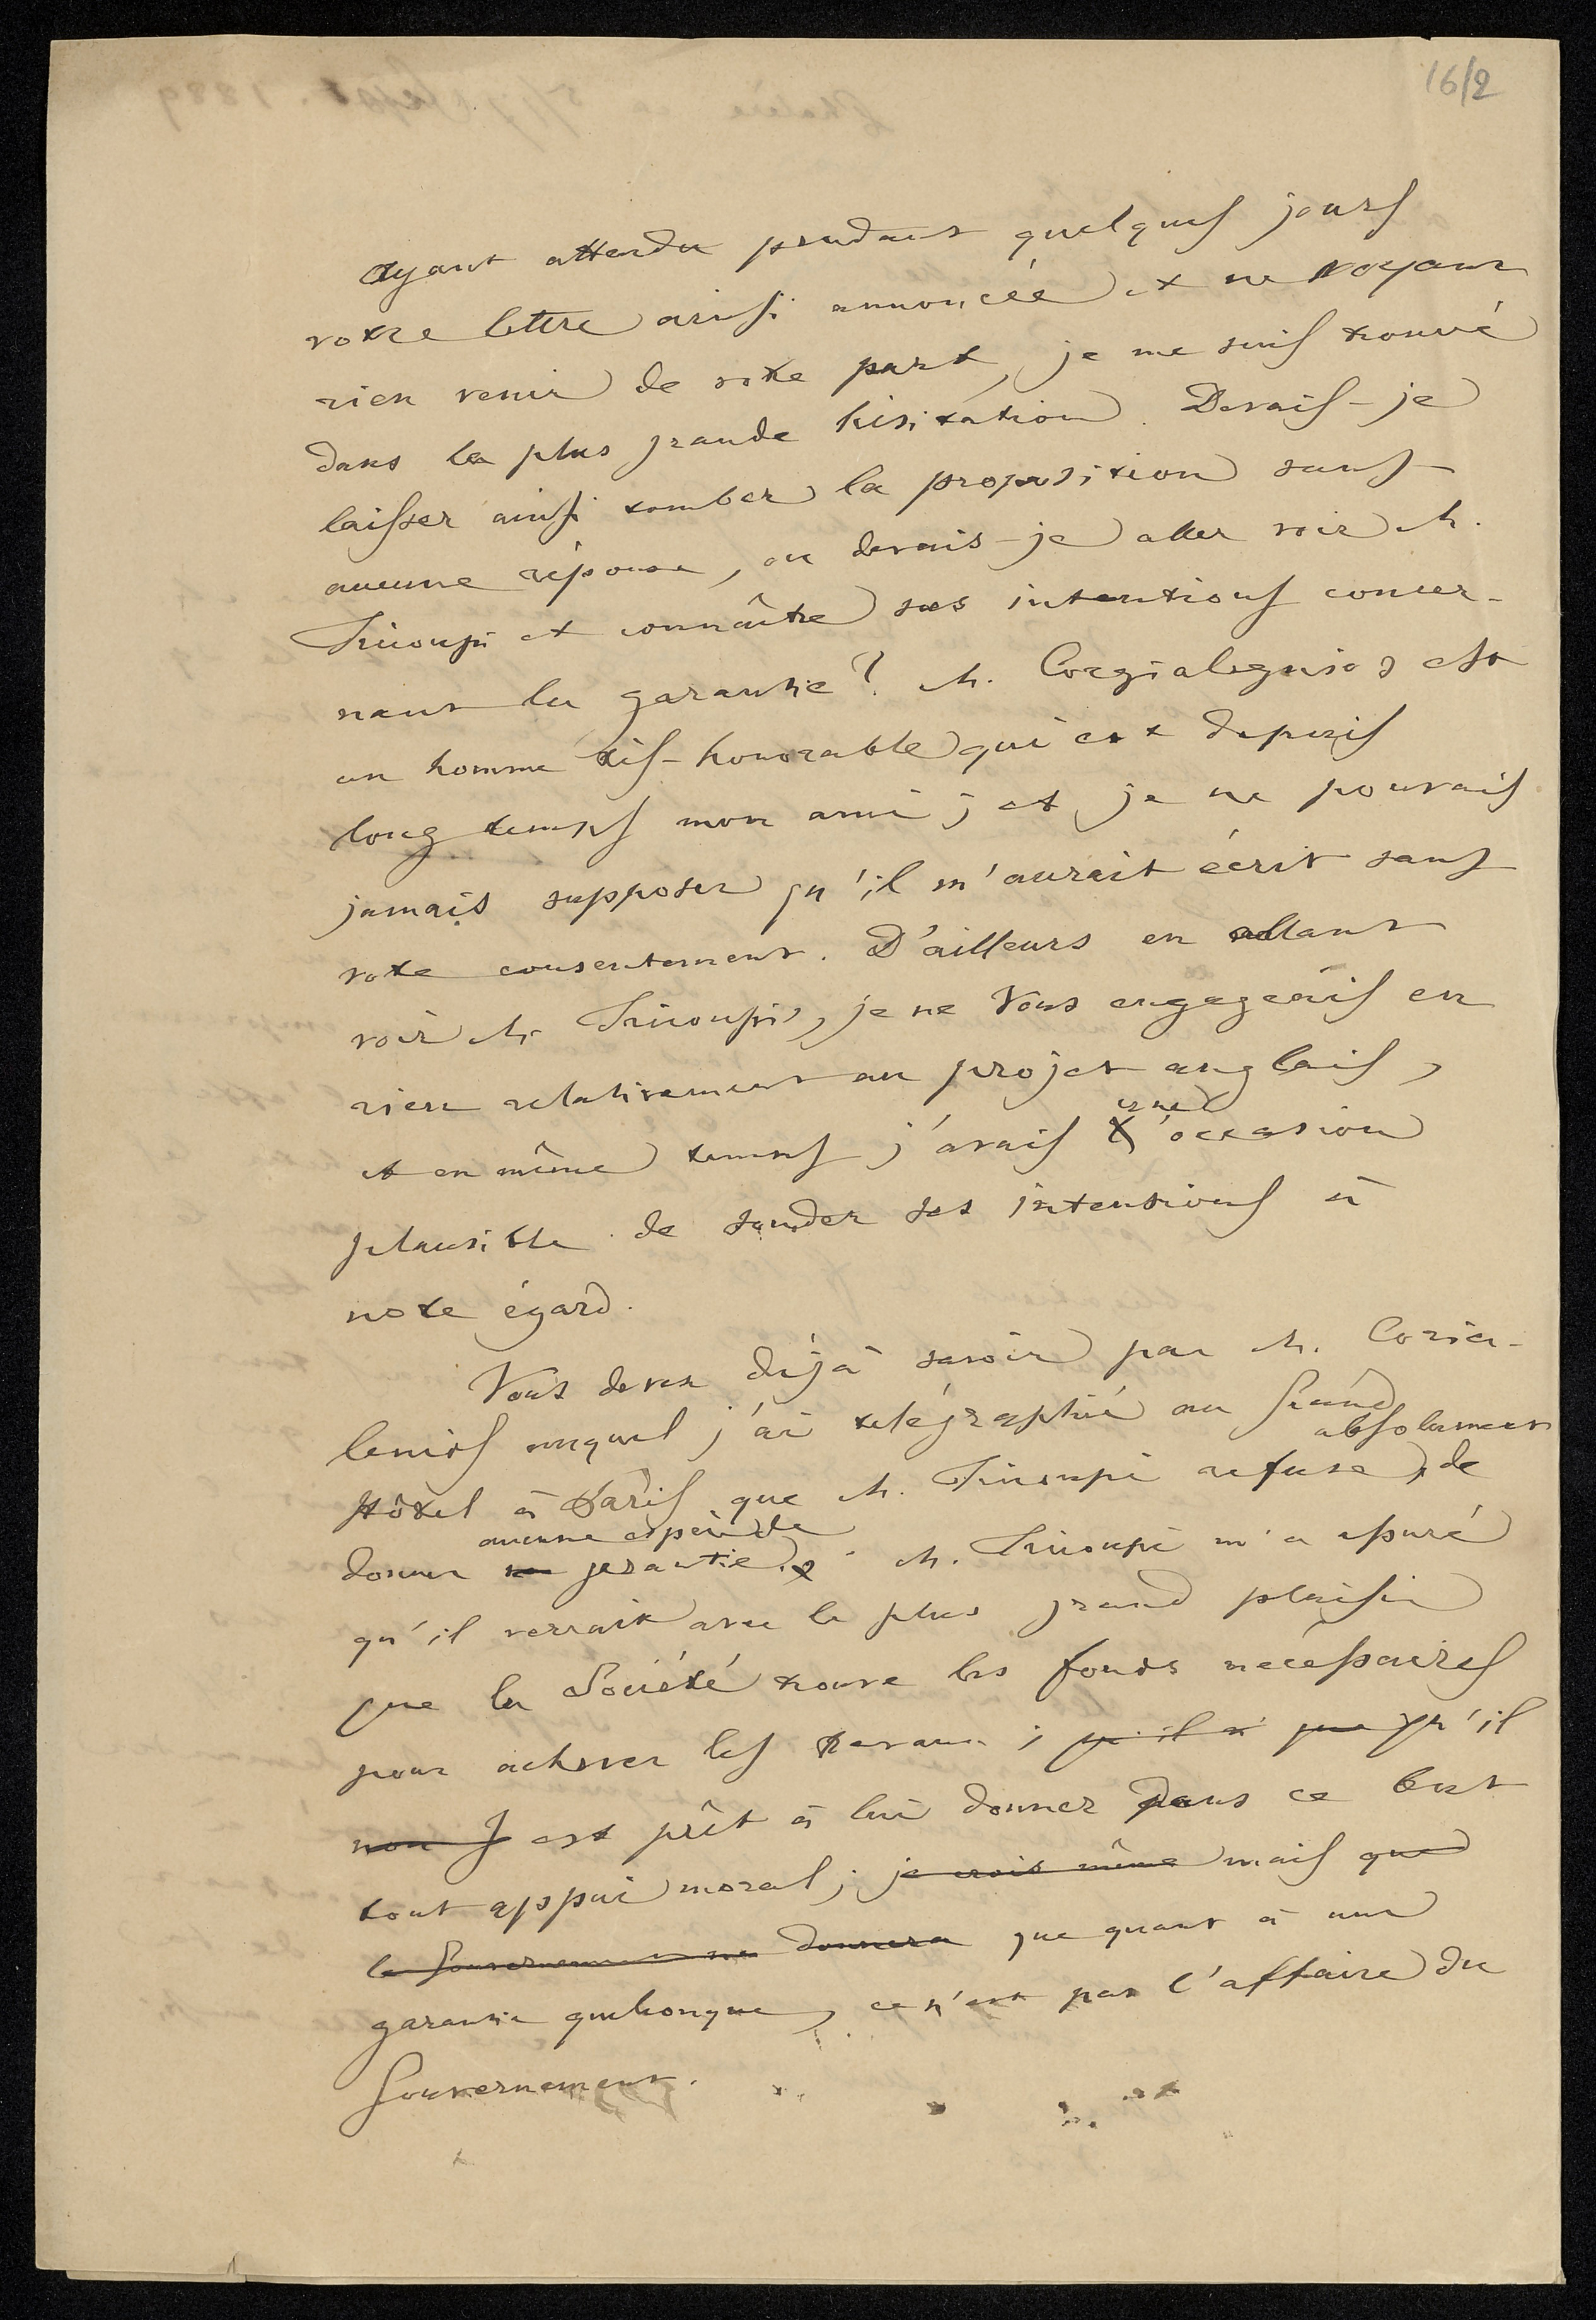 16/2
Ayant attendu pendant quelques jours
votre lettre ainsi annoncée et ne voyant
rien venir de votre part, je me suis trouvé
dans la plus grande hésitation. Devais-je
laisser ainsi tomber la proposition sans
aucune réponse, ou devais-je aller voir M.
Tricoupi et connaître ses intentions concer-
nant la garantie? M. Corgialegnios est
un homme très-honorable qui est depuis
long temps mon ami; et je ne pouvais
jamais supposer qu'il m'aurait écrit sans
votre consentement. D'ailleurs en allant
voir M. Tricoupi, je ne Vous engageais en
rien relativement au projet anglais,
et en même temps j'avais une occasion
plausible de sonder ses intentions à
notre égard.
Vous devez déjà savoir par M. Coria-
lenios auquel j'ai télégraphié au Grand
absolument
Hôtel à Paris que M. Tricoupi refuse de
aucune espèce de
donner garantie. M. Tricoupi m'a assuré
qu'il verrait avec le plus grand plaisir
que la Société trouve les fonds nécessaires
pour achever les travaux; qu'il
est prêt à lui donner dans ce but
tout appui moral; je crois même mais que
le Gouvernement ne donnera que quant à une
garantie quelconque, ce n'est pas l'affaire du
Gouvernement.